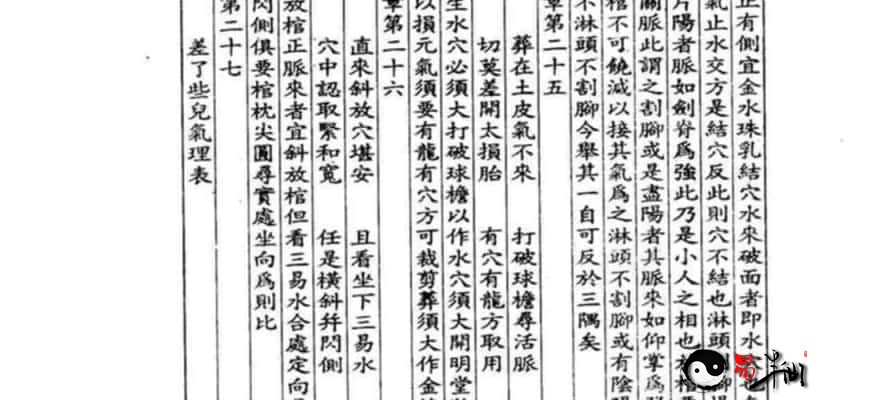 正有側宜金水珠乳結穴水來破面者即水
氣止水交方是結穴反此則穴不結也淋頭割腳
片陽者脈如劍脊為強此乃是小人之相也
關脈此謂之割腳或是盡陽者其脈來如仰掌為
棺不可饒減以接其氣為之淋頭不割腳或有陰
不淋頭不割腳今舉其一自可反於三隅矣
章第二十五
葬在土皮氣不來 打破球檐尋活脈
切莫差開太損胎 有穴有龍方取用
生水穴必須大打破球檐以作水穴須大開明堂
以損元氣須要有龍有穴方可裁剪葬須大作金
章第二十六
直來斜放穴堪安 且看坐下三易水
穴中認取緊和寬 任是橫斜并閃側
放棺正脈來者宜斜放棺但看三易水合處定向
閃側俱要棺枕尖圓尋實處坐向為則比
第二十七
差了些兒氣理表
易